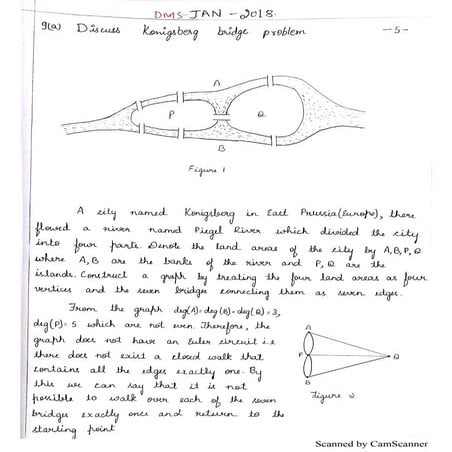 DMS-JAN-2018.
9(a) Discuss Konigsberg bridge problem
-5-
A
P
Q
B
Figure 1
A city named Konigsberg in East Prussia (Europe), there
flowed a river named Piegel River which divided the city
into four parts. Denote the land areas of the city by A,B,P,Q
where A, B are the banks of the river and P, Q are the
islands. Construct a graph by treating the four land areas as four
vertices and the seven bridges connecting them as seven edges.
From the graph deg(A)=deg(B)=deg(Q)=3,
deg(P)=5 which are not even. Therefore, the
graph does not have an Euler circuit i.e
there does not exist a closed walk that
contains all the edges exactly one. By
this we can say that it is not
possible to walk over each of the seven
bridges exactly once and return to the
starting point
A
P
Q
B
Figure 2
Scanned by CamScanner